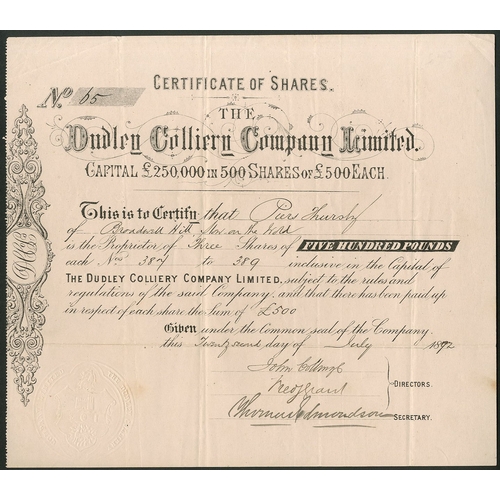 CERTIFICATE OF SHARES.
No. 65
THE
Dudley Colliery Company Limited.
CAPITAL £250,000 IN 500 SHARES OF £500 EACH.
This is to Certify that Piers Thursby
of Broadwell Hill, Stow on the Wold
is the Proprietor of Three Shares of FIVE HUNDRED POUNDS
each Nos 387 to 389 inclusive in the Capital of
THE DUDLEY COLLIERY COMPANY LIMITED, subject to the rules and
regulations of the said Company, and that there has been paid up
in respect of each share the Sum of £500
Given under the Common seal of the Company,
this Twenty second day of July 1892
John
DIRECTORS.
Thomas Edmondson SECRETARY.